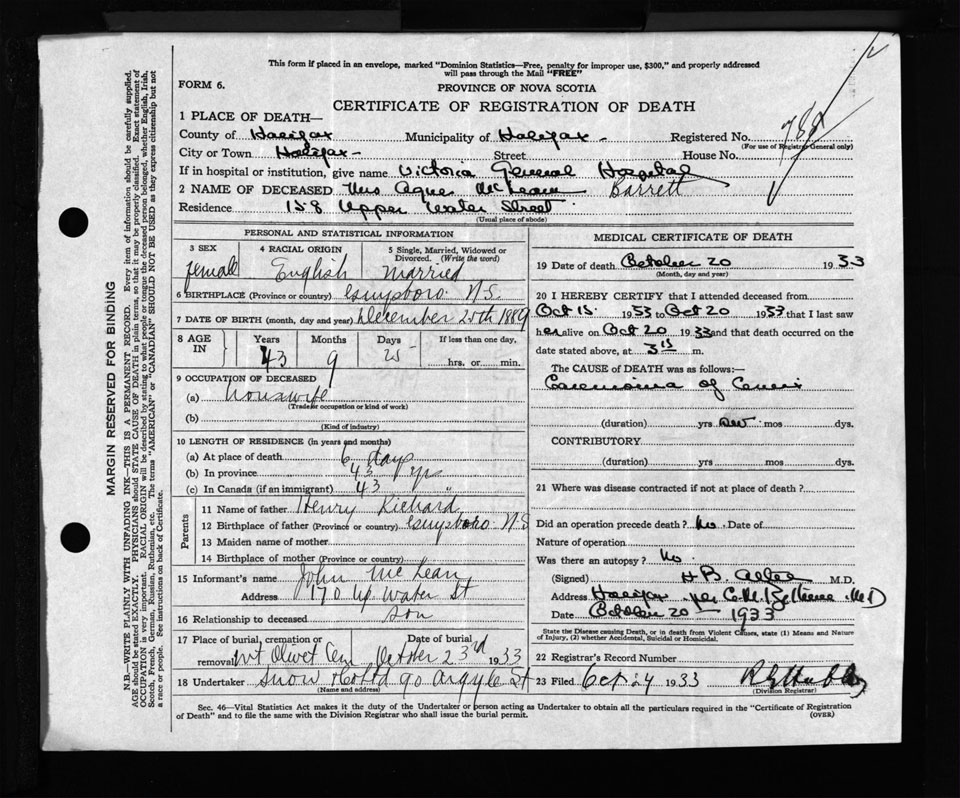 This form if placed in an envelope, marked "Dominion Statistics—Free, penalty for improper use, $300," and properly addressed
will pass through the Mail "FREE"
FORM 6.
PROVINCE OF NOVA SCOTIA
CERTIFICATE OF REGISTRATION OF DEATH
1 PLACE OF DEATH—
County of Halifax Municipality of Halifax Registered No.
(For use of Registrar General only)
City or Town Halifax Street House No.
If in hospital or institution, give name Victoria General Hospital
2 NAME OF DECEASED Mrs Agnes McLean Barrett
Residence 158 Upper Water Street
(Usual place of abode)
PERSONAL AND STATISTICAL INFORMATION
3 SEX 4 RACIAL ORIGIN 5 Single, Married, Widowed or Divorced. (Write the word)
female English Married
6 BIRTHPLACE (Province or country) Guysboro N.S.
7 DATE OF BIRTH (month, day and year) December 25th 1889
8 AGE IN Years Months Days If less than one day,
43 9 25 hrs. or min.
9 OCCUPATION OF DECEASED
(a) Housewife
(Trade or occupation or kind of work)
(b)
(Kind of industry)
10 LENGTH OF RESIDENCE (in years and months)
(a) At place of death 6 days
(b) In province 43 yrs
(c) In Canada (if an immigrant) 43 "
Parents
11 Name of father Henry Richard
12 Birthplace of father (Province or country) Guysboro N.S
13 Maiden name of mother
14 Birthplace of mother (Province or country)
15 Informant's name John McLean
Address 170 Up Water St
16 Relationship to deceased son
17 Place of burial, cremation or Date of burial
removal Mt Olivet Cem October 23rd 1933
18 Undertaker Snow & Co Ltd 90 Argyle St
(Name and address)
MEDICAL CERTIFICATE OF DEATH
19 Date of death October 20 1933
(Month, day and year)
20 I HEREBY CERTIFY that I attended deceased from
Oct 15 1933 to Oct 20 1933 that I last saw
her alive on Oct 20 1933 and that death occurred on
date stated above, at 3 15 m.
The CAUSE of DEATH was as follows:—
Carcinoma of Cervix
(duration) yrs mos dys.
CONTRIBUTORY
(duration) yrs mos dys.
21 Where was disease contracted if not at place of death?
Did an operation precede death? No Date of
Nature of operation
Was there an autopsy? No
(Signed) H B Atlee M.D.
Address Halifax per M D
Date October 20 1933
State the Disease causing Death, or in death from Violent Causes, state (1) Means and Nature
of Injury, (2) whether Accidental, Suicidal or Homicidal.
22 Registrar's Record Number
23 Filed Oct 24 1933
(Division Registrar)
Sec. 46—Vital Statistics Act makes it the duty of the Undertaker or person acting as Undertaker to obtain all the particulars required in the "Certificate of Registration
of Death" and to file the same with the Division Registrar who shall issue the burial permit.
(OVER)
MARGIN RESERVED FOR BINDING
N.B.—WRITE PLAINLY WITH UNFADING INK—THIS IS A PERMANENT RECORD. Every item of information should be carefully supplied.
AGE should be stated EXACTLY. PHYSICIANS should STATE CAUSE OF DEATH in plain terms, so that it may be properly classified. Exact statement of
OCCUPATION is very important. RACIAL ORIGIN will be described by stating to what people or tongue the deceased person belonged, whether English, Irish,
Scotch, French, German, Russian, Ruthenian, etc. The terms "AMERICAN" or "CANADIAN" SHOULD NOT BE USED as they express citizenship but not
a race or people. See instructions on back of Certificate.